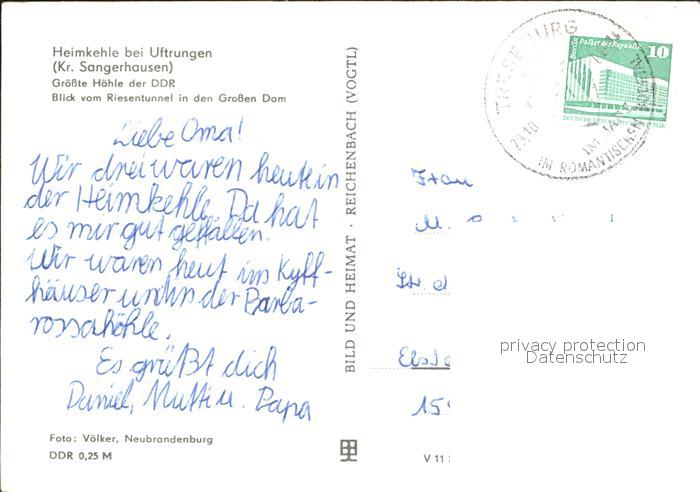 Heimkehle bei Uftrungen
(Kr. Sangerhausen)
Größte Höhle der DDR
Blick vom Riesentunnel in den Großen Dom
Liebe Oma!
Wir drei waren heute in
der Heimkehle. Da hat
es mir gut gefallen.
Wir waren heut im Kyff-
häuser und in der Barba-
rossahöhle.
Es grüßt dich
Daniel, Mutti u. Papa
Foto: Völker, Neubrandenburg
DDR 0,25 M
BILD UND HEIMAT · REICHENBACH (VOGTL)
V 11
TRESEBURG
IM ROMANTISCHEN
Berlin, Palast der Republik
10
Frau
M.
Str. d
privacy protection
Datenschutz